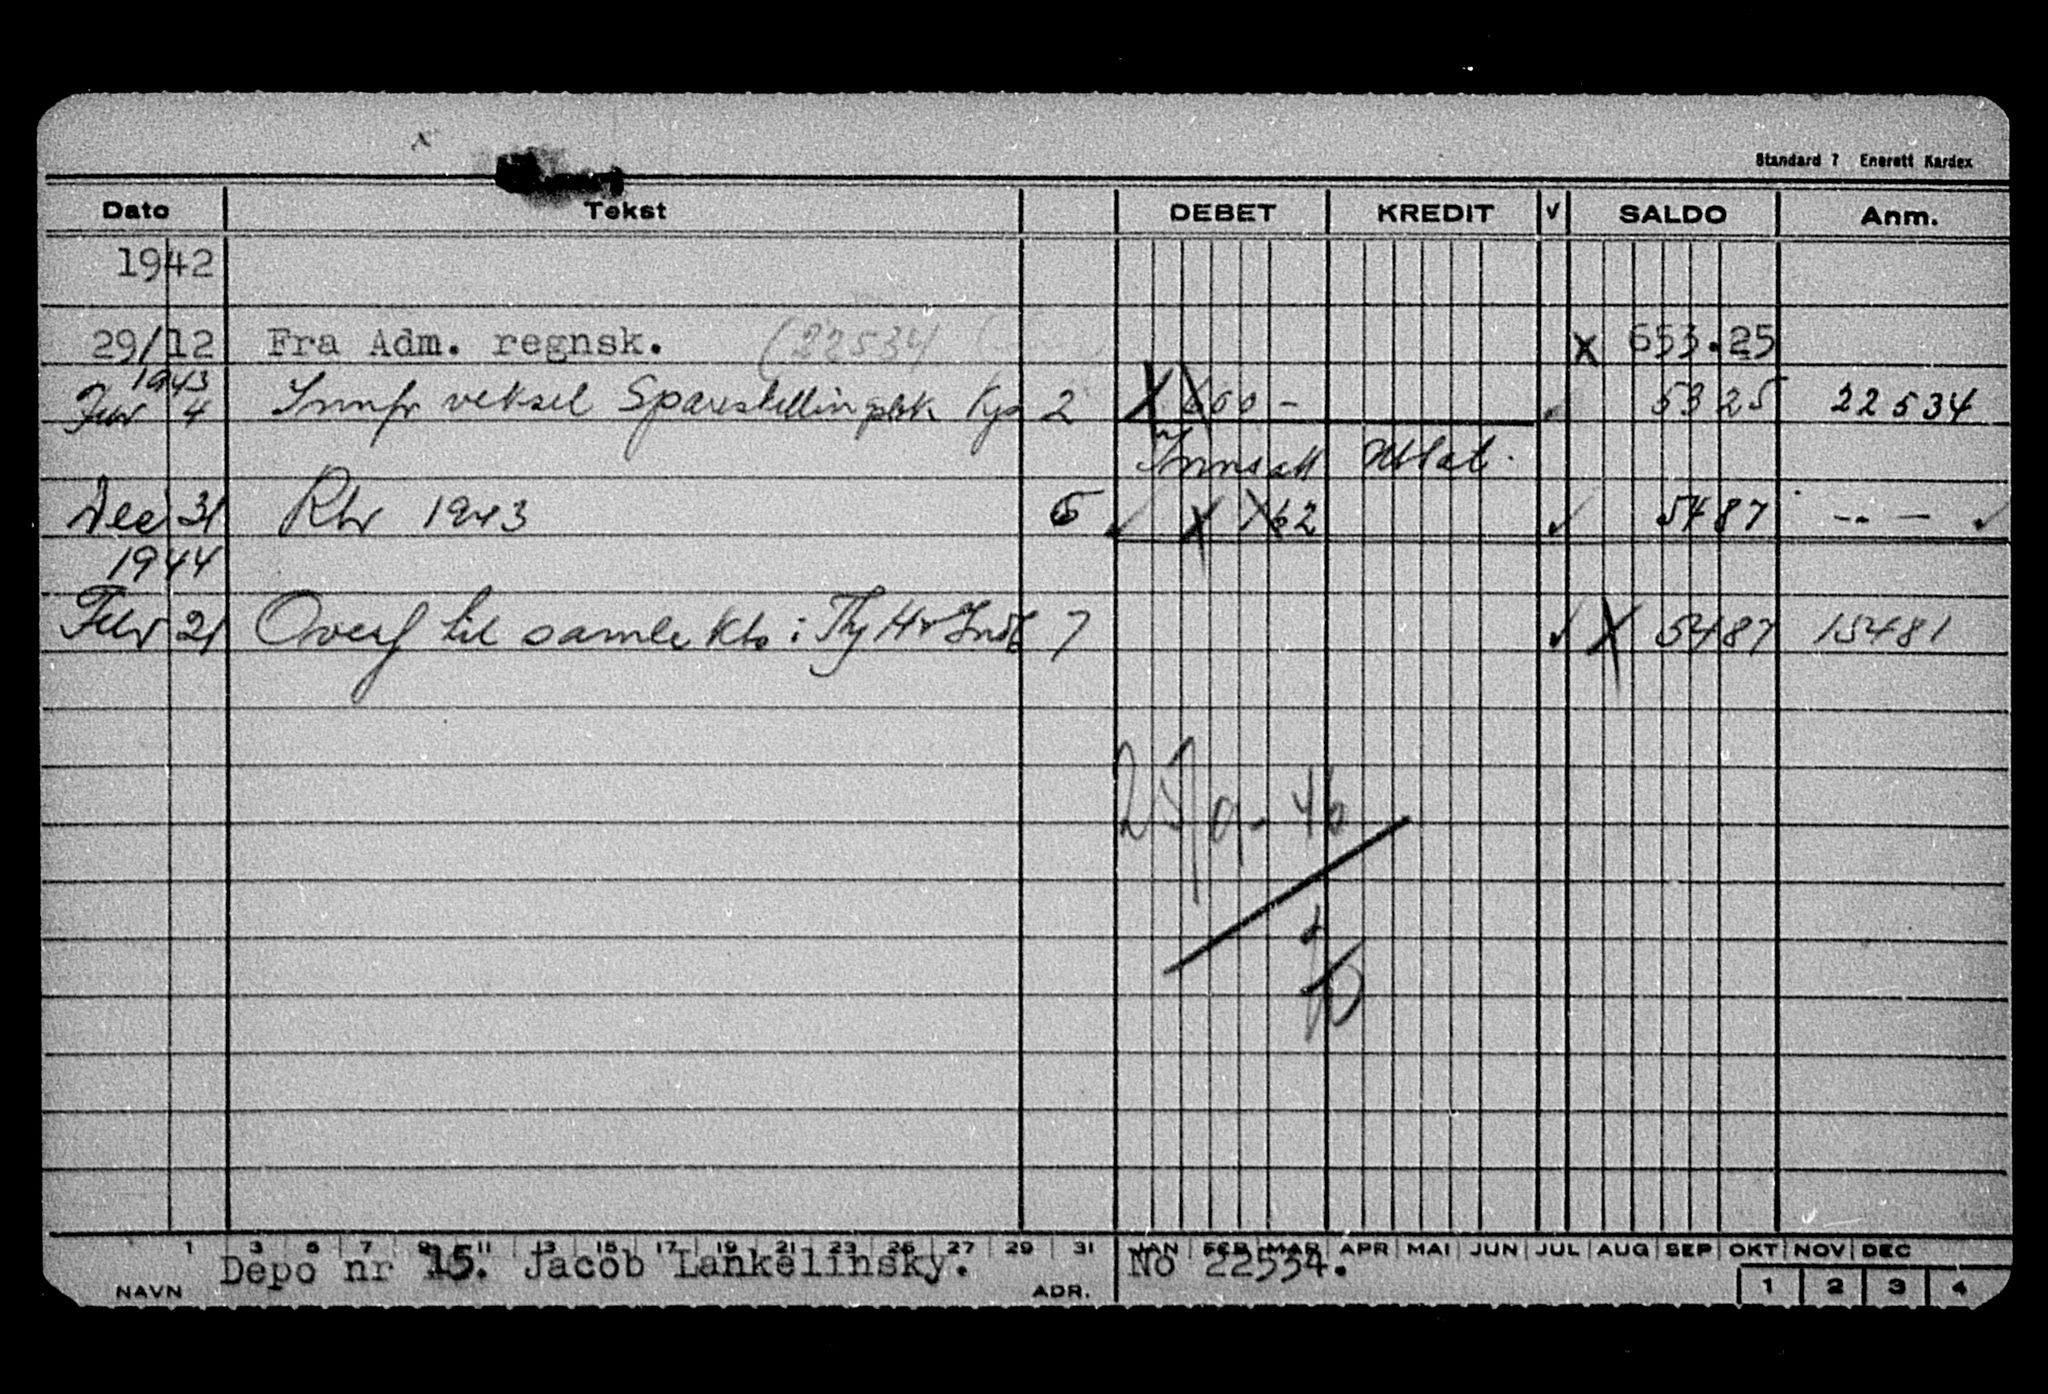 x
Standard 7 Enerett Kardex
Dato Tekst DEBET KREDIT √ SALDO Anm.
1942
29/12 Fra Adm. regnsk. (22534 x 653.25
1943
Febr 4 Innfr veksel Spareskillingsbk 2 X 600 - 5325 22534
Innsatt Uttat.
Dec 31 Rtr 1943 6 ✓ X 162 ✓ 5487 -- — ✓
1944
Febr 21 Overf til samle Kto i 7 ✓ X 5487 15481
25/9-46
1 3 5 7 9 11 13 15 17 19 21 23 25 27 29 31 JAN FEB MAR APR MAI JUN JUL AUG SEP OKT NOV DEC
NAVN Depo nr 15. Jacob Lankelinsky. ADR. No 22534.
1 2 3 4